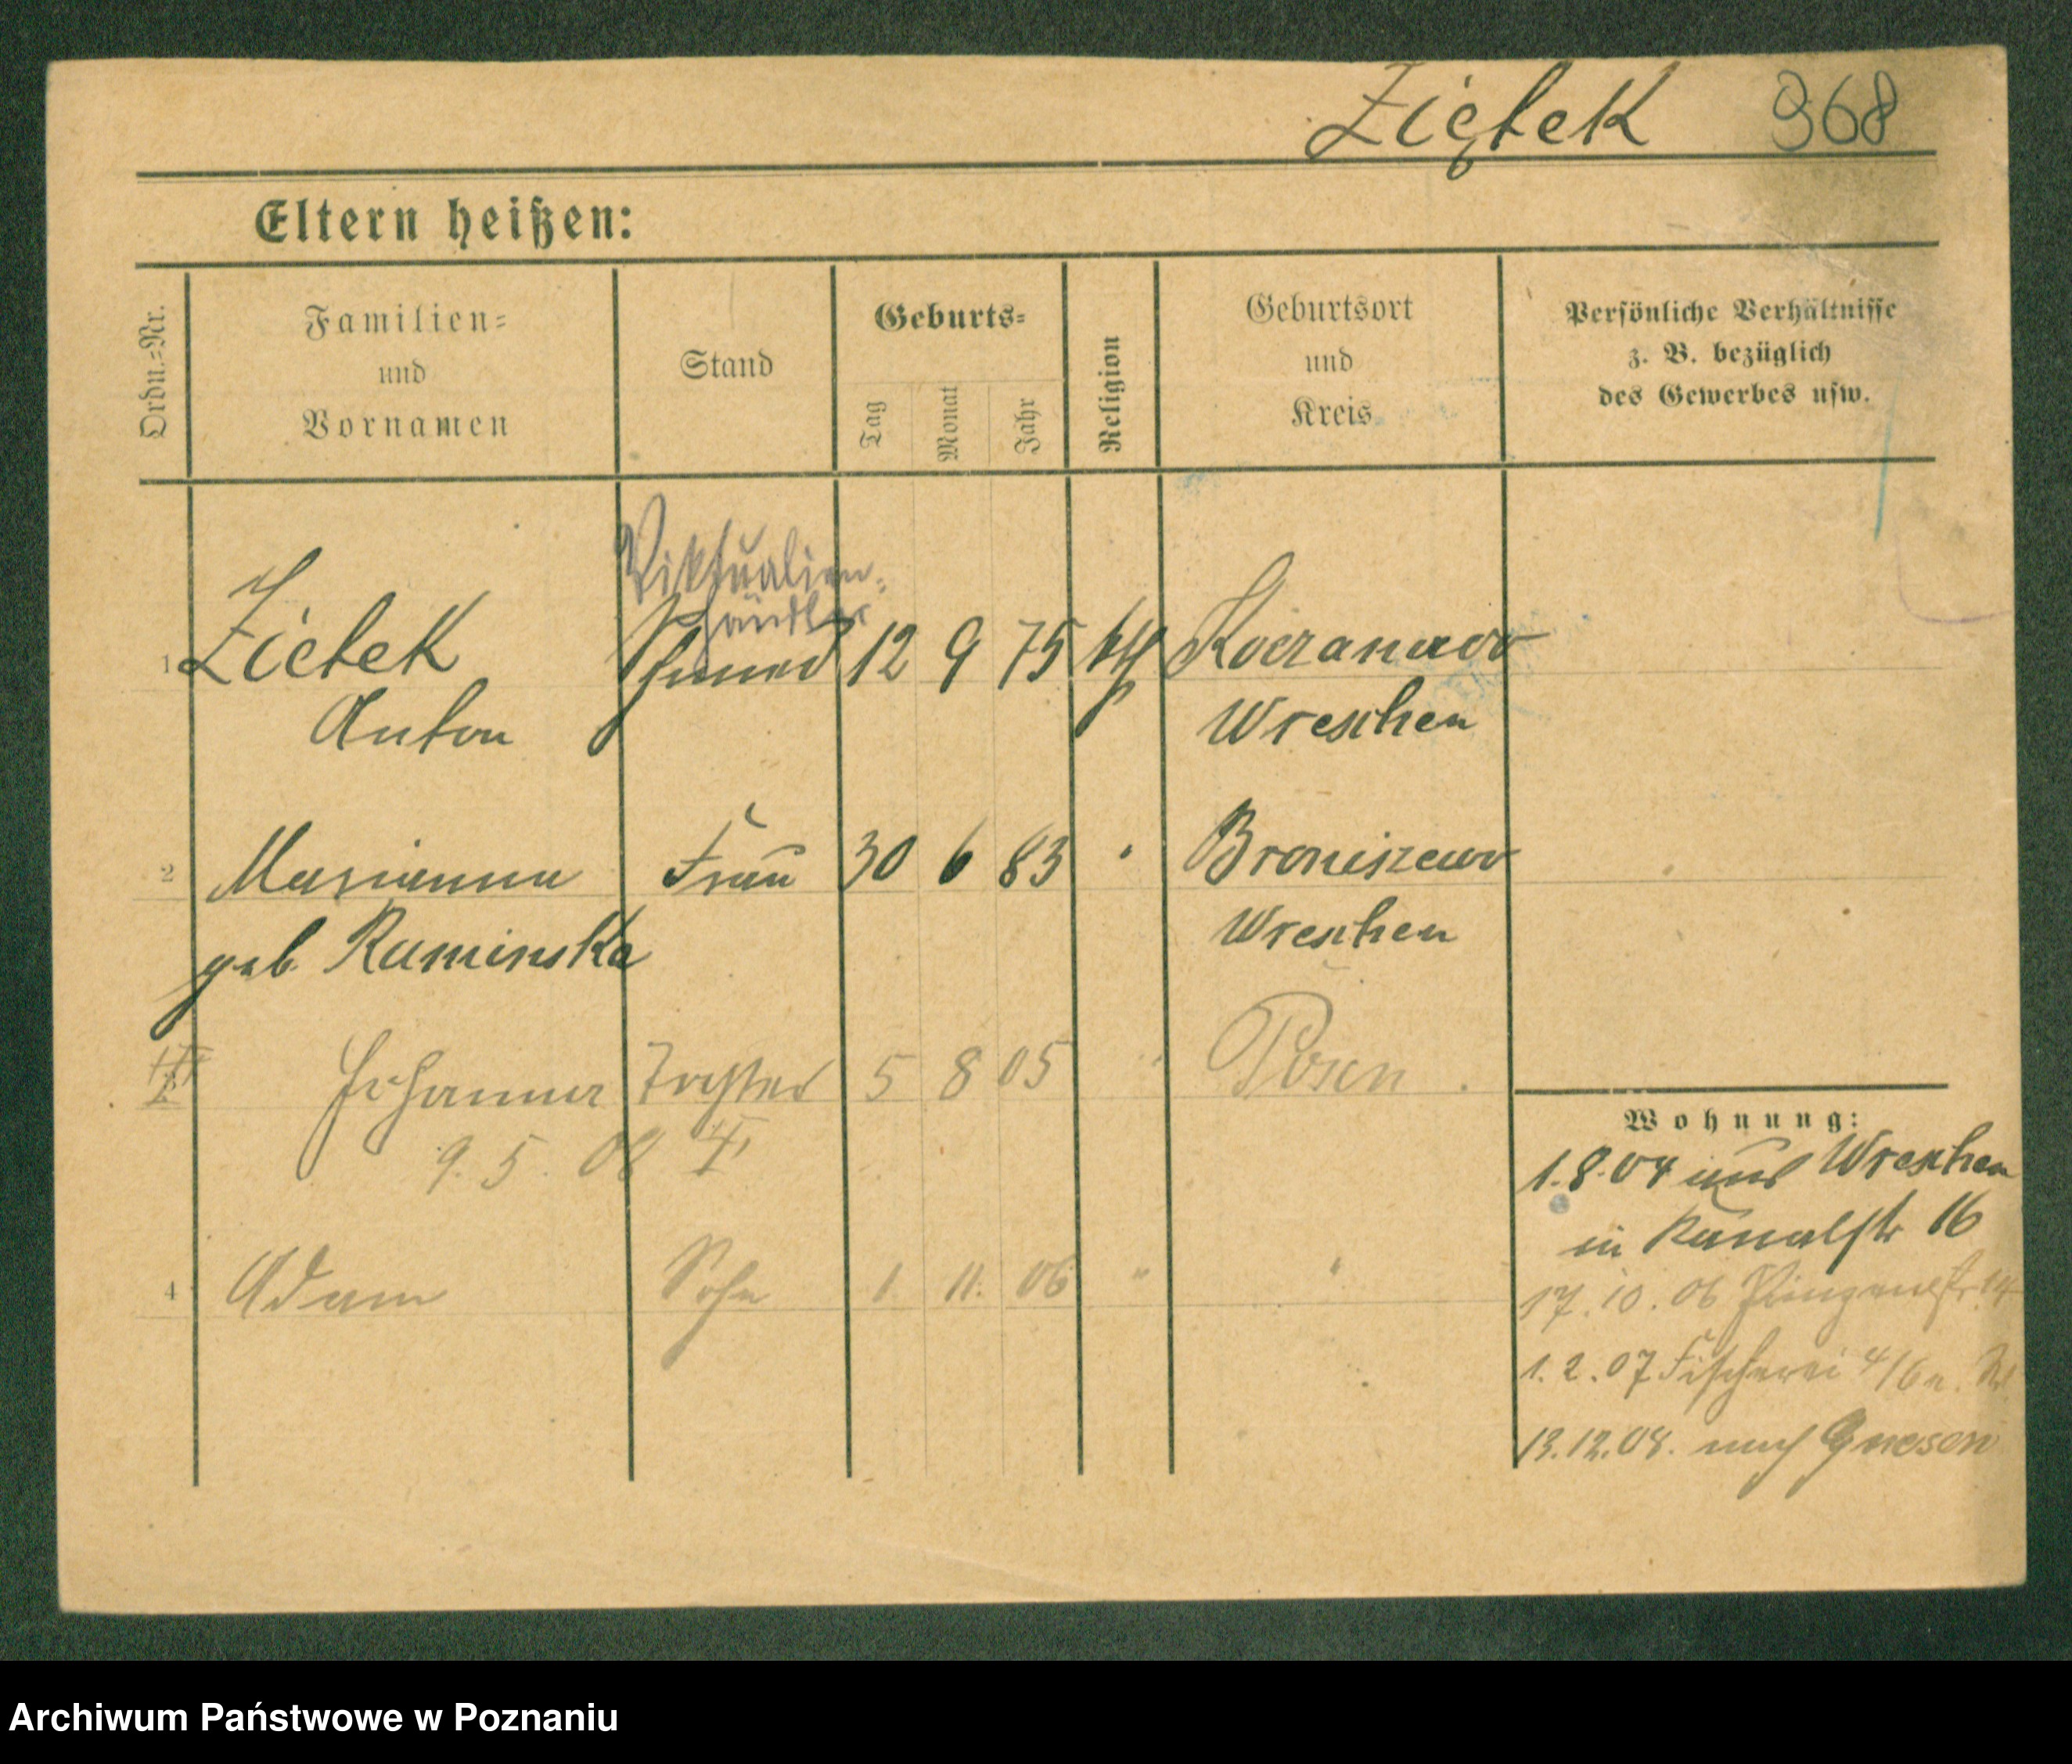 Ziętek 968
Eltern heißen:
Ordn.=Nr.
Familien=
und
Vornamen
Stand
Geburts=
Tag
Monat
Jahr
Religion
Geburtsort
und
Kreis
Persönliche Verhältnisse
z. B. bezüglich
des Gewerbes usw.
Viktualien=
händler
1 Zietek 12 9 75 kth
Anton Wreschen
2 Marianna Frau 30 6 83 " Broniszewo
geb. Kaminska Wreschen
Johanna Tochter 5 8 05 " Posen
9. 5. 08
4 Adam Sohn 1. 11. 06 " "
Wohnung:
1.8.04 aus Wreschen
in Kanalstr 16
17.10.06 14
1.2.07 Fischerei 4/6
13.12.08. nach Gnesen
Archiwum Państwowe w Poznaniu